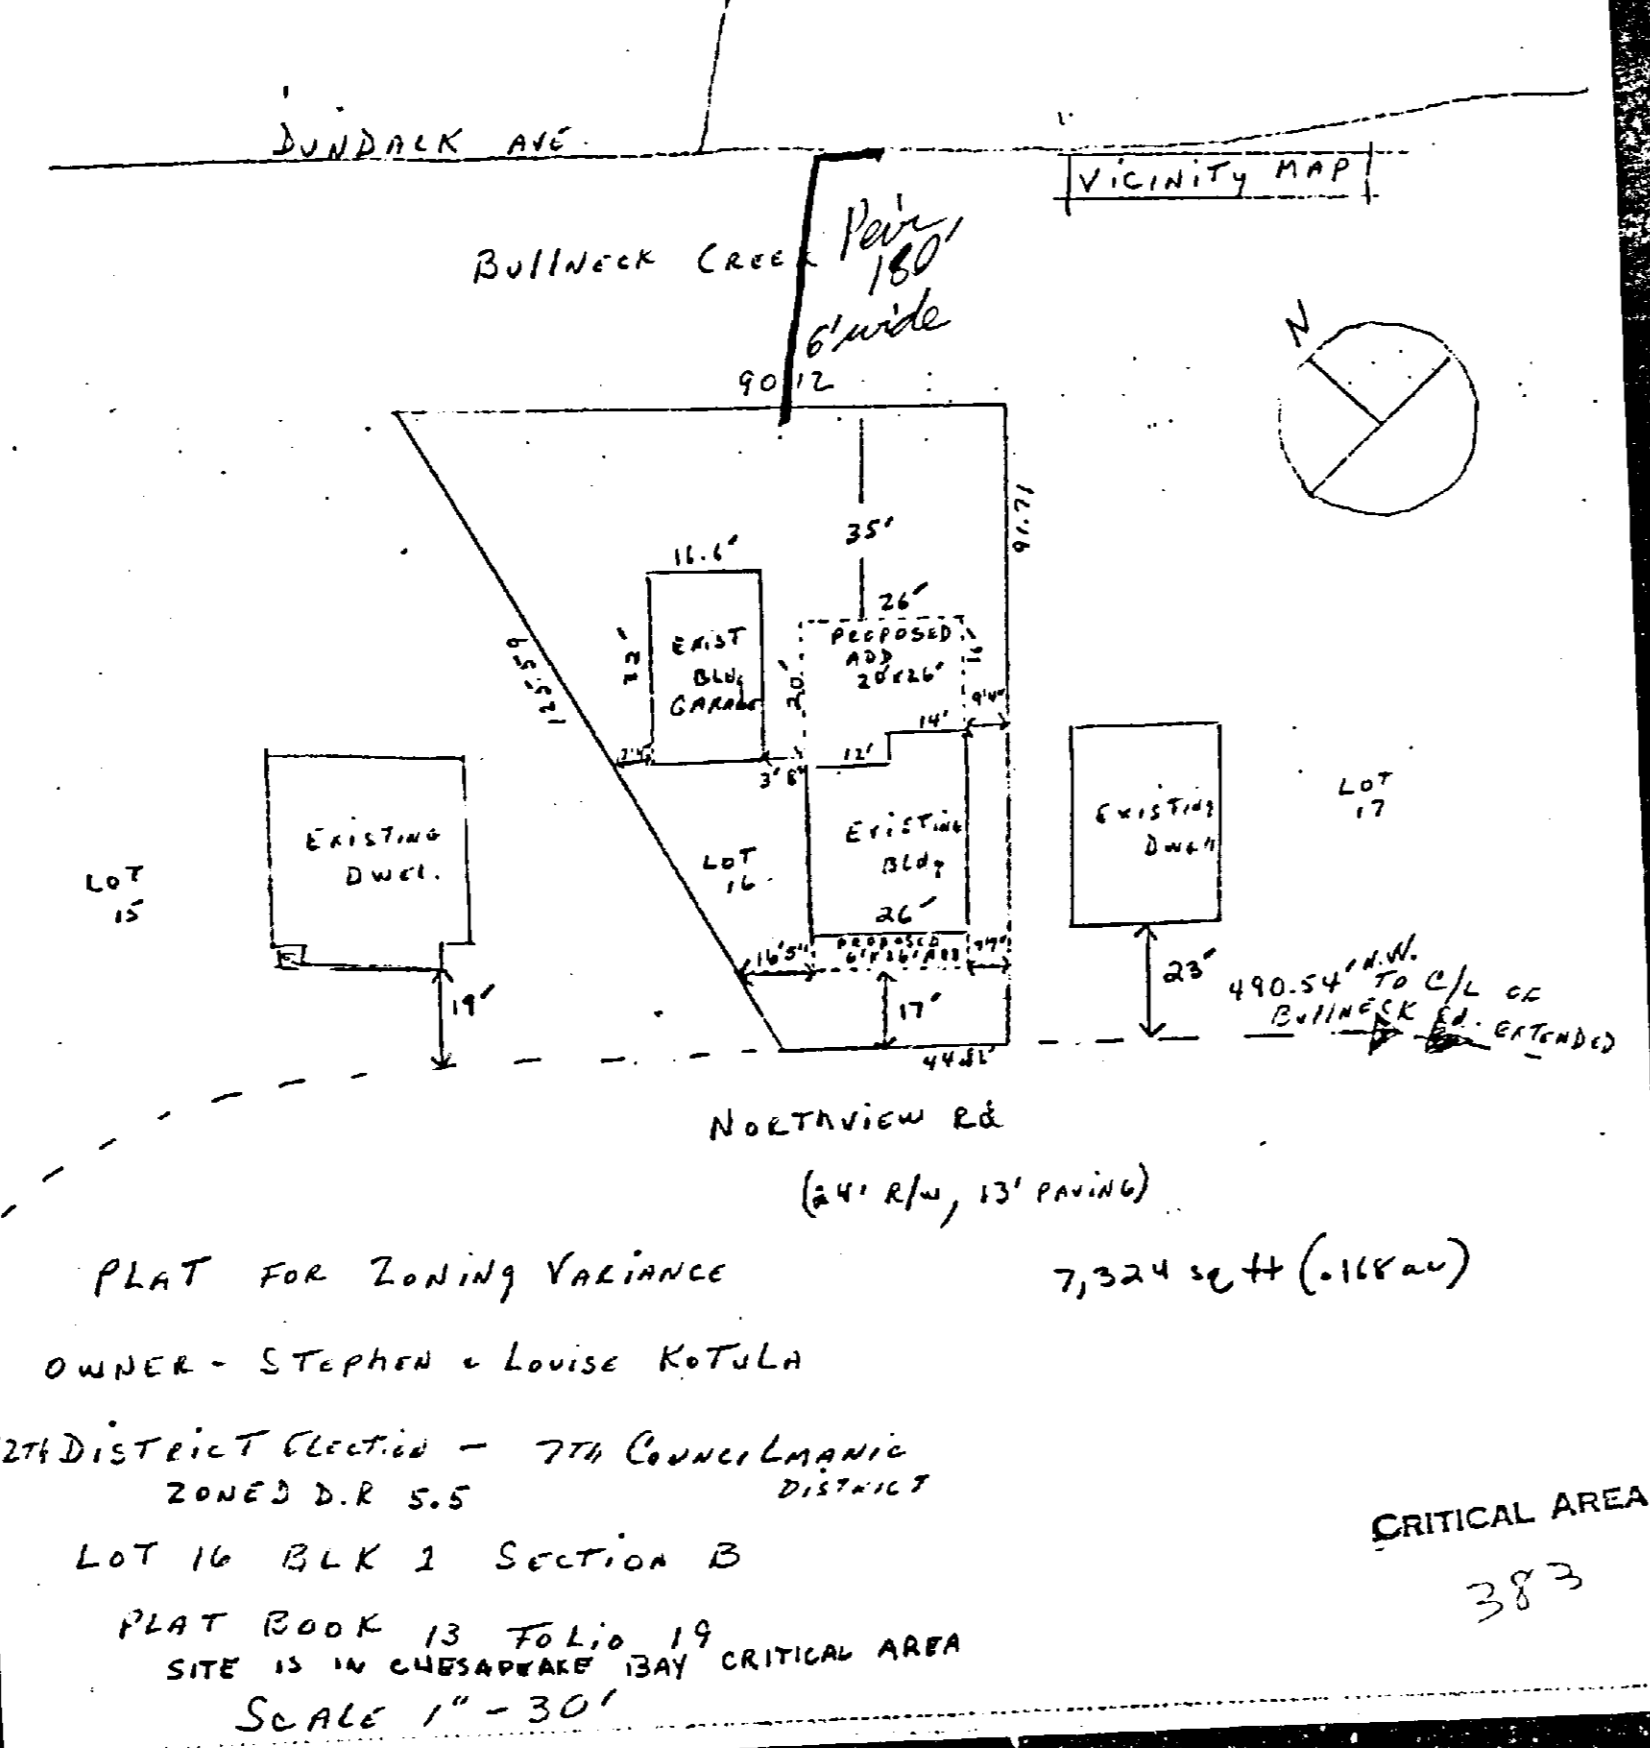 DUNDALK AVE.
VICINITY MAP
BULLNECK CREEK
Peir
180'
6' wide
90.12
N
35'
91.71
16.6'
26'
22'
EXIST
BLDG
GARAGE
20'
PROPOSED
ADD
20'x26'
16'
125.59
9'4"
14'
12'
3'8"
EXISTING
DWEL.
LOT
15
LOT
16
EXISTING
BLDG
26'
EXISTING
DWELL
LOT
17
PROPOSED
6'x26' ADD
16'5"
19'
17'
23'
490.54' N.W.
TO C/L OF
BULLNECK Rd. EXTENDED
NORTHVIEW Rd
(24' R/W, 13' PAVING)
PLAT FOR ZONING VARIANCE
7,324 sq ft (.168 ac)
OWNER - STEPHEN & LOUISE KOTULA
2TH DISTRICT ELECTION - 7TH COUNCILMANIC
DISTRICT
ZONED D.R 5.5
LOT 16 BLK 1 SECTION B
PLAT BOOK 13 FOLIO 19
SITE IS IN CHESAPEAKE BAY CRITICAL AREA
SCALE 1" - 30'
CRITICAL AREA
383